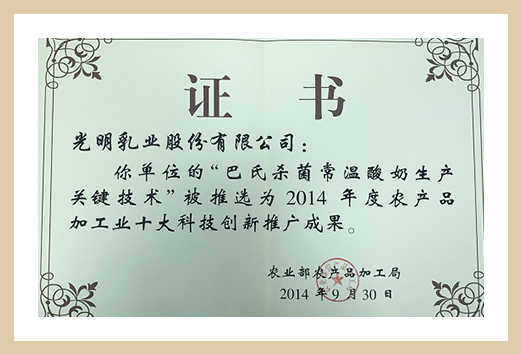 证 书
光明乳业股份有限公司：
你单位的“巴氏杀菌常温酸奶生产
关键技术”被推选为2014 年度农产品
加工业十大科技创新推广成果。
农业部农产品加工局
2014 年9 月30 日